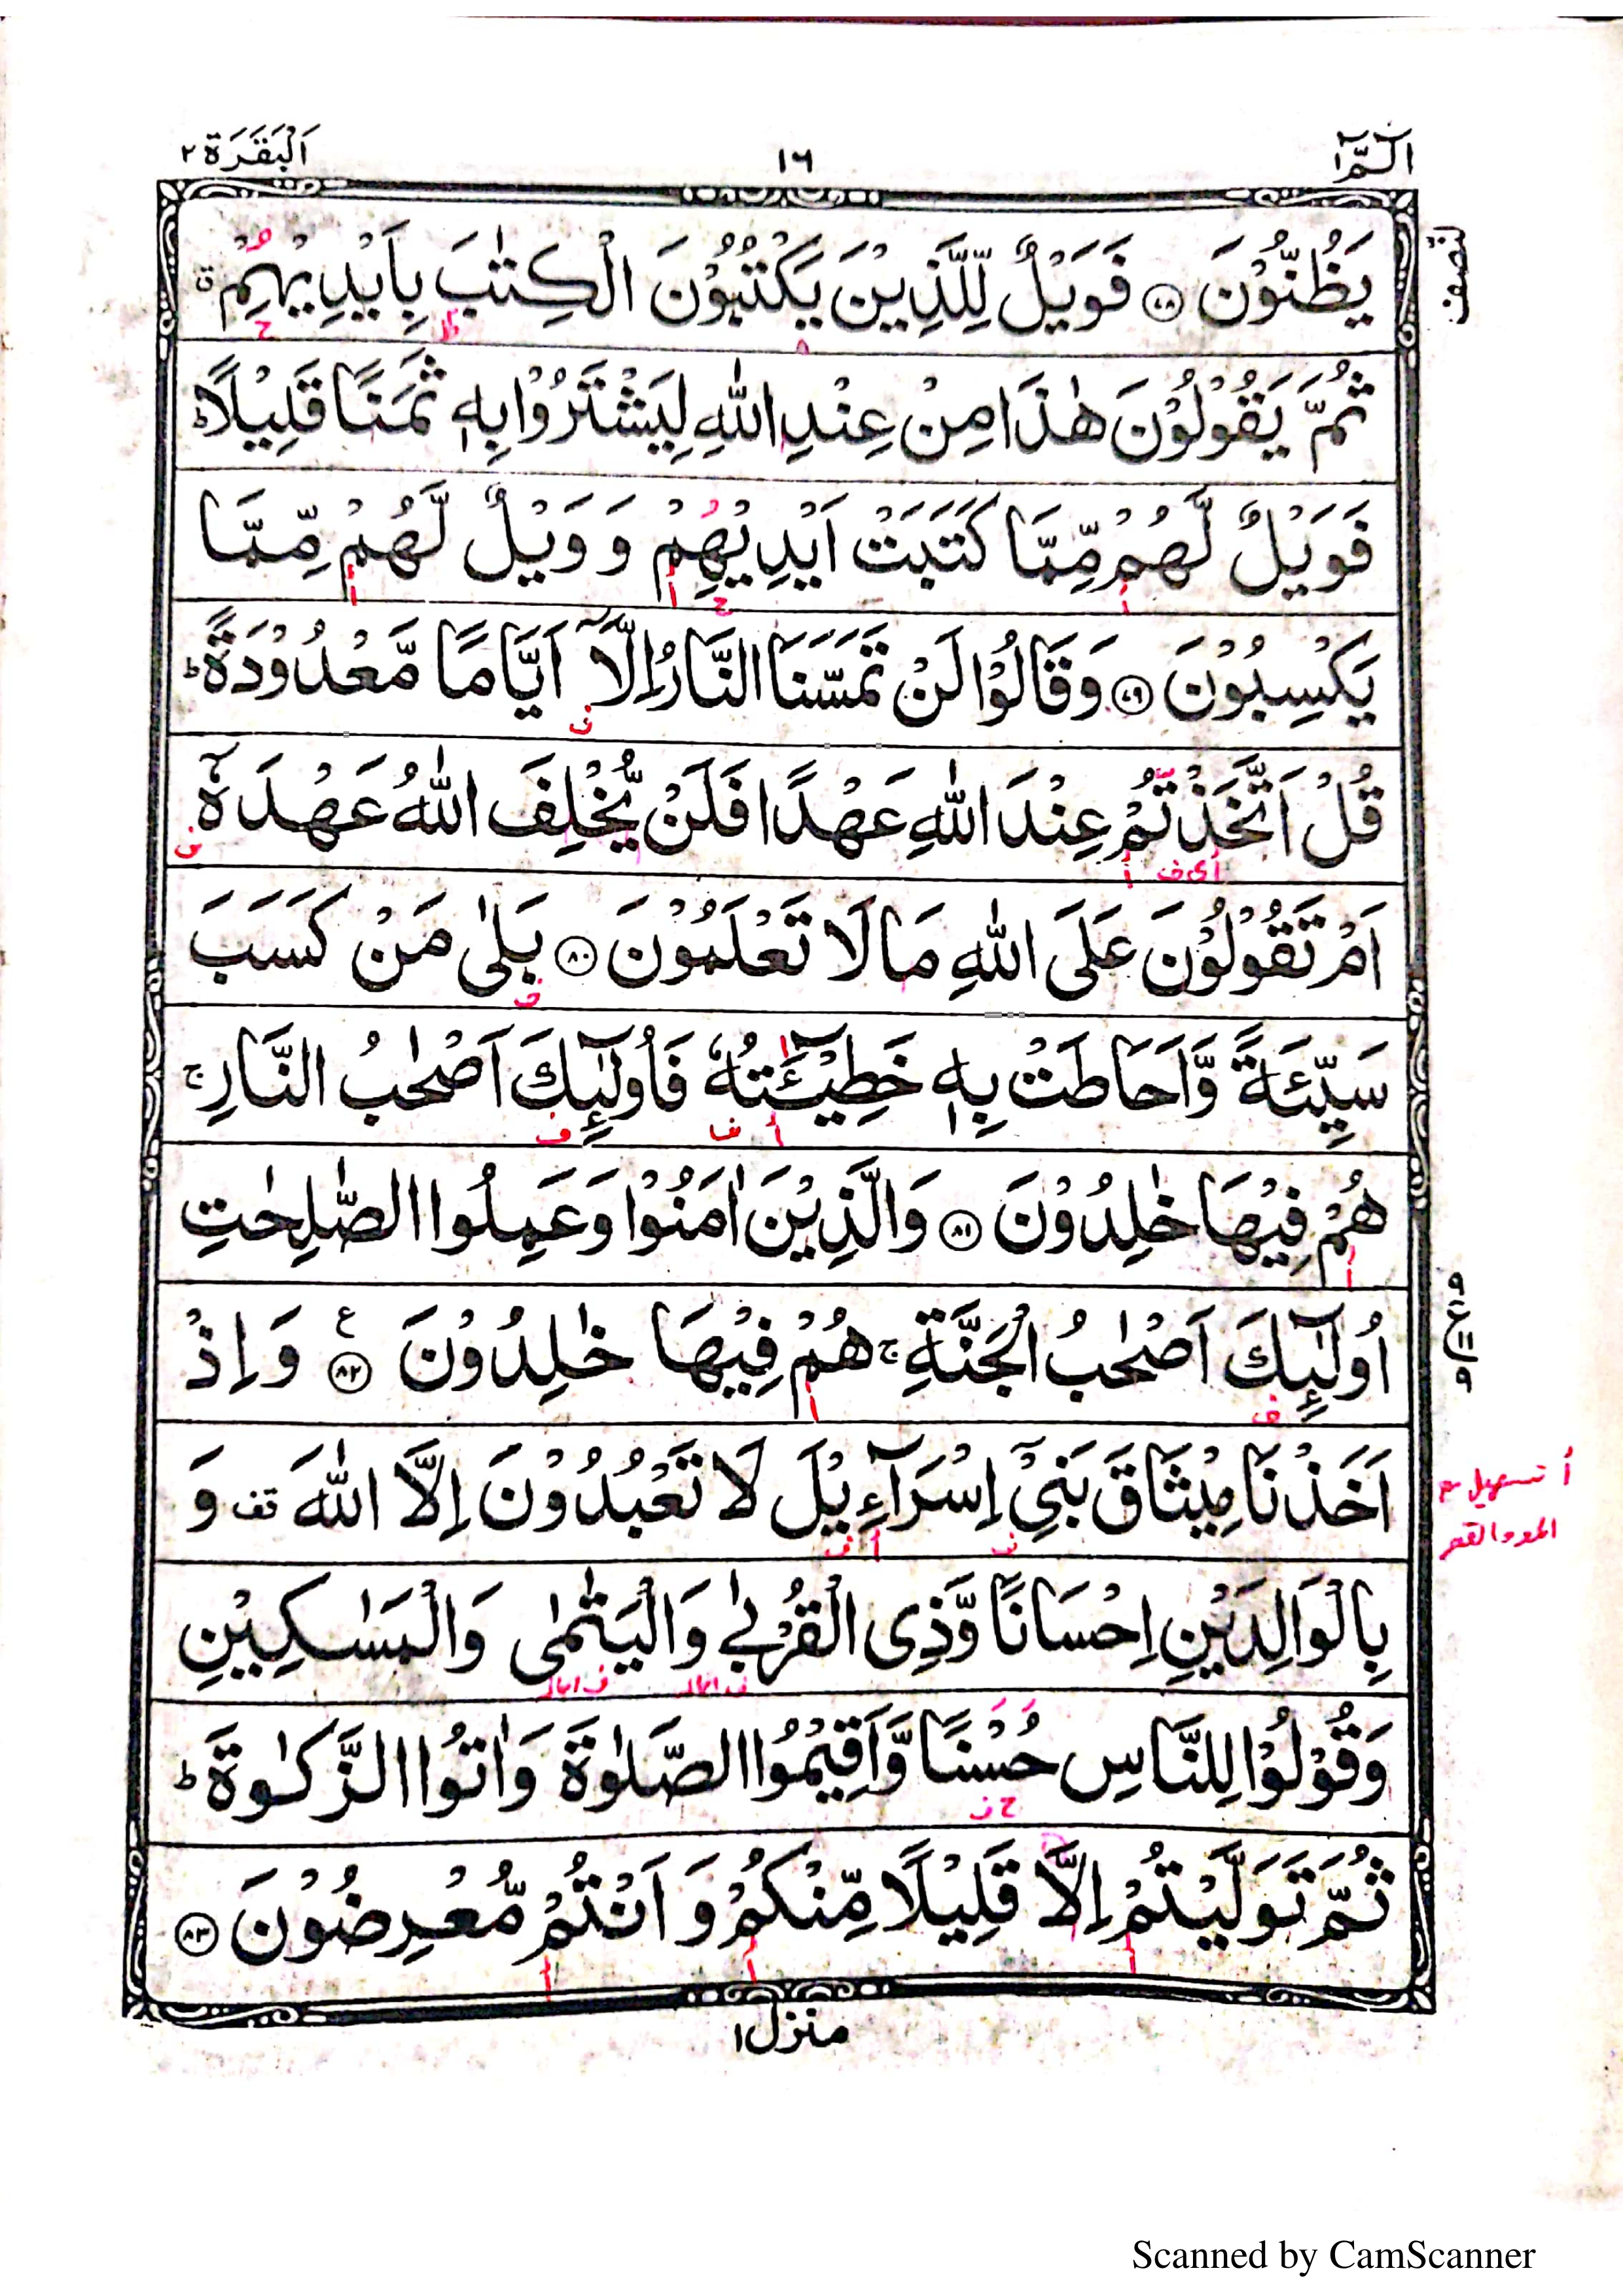 الٓمّٓ ١
١٦
اَلْبَقَرَة ٢
النّصف
يَظُنُّوْنَ ﴿٧٨﴾ فَوَيْلٌ لِّلَّذِيْنَ يَكْتُبُوْنَ الْكِتٰبَ بِاَيْدِيْهِمْ ۗ
ثُمَّ يَقُوْلُوْنَ هٰذَا مِنْ عِنْدِ اللّٰهِ لِيَشْتَرُوْا بِهٖ ثَمَنًا قَلِيْلًا ؕ
فَوَيْلٌ لَّهُمْ مِّمَّا كَتَبَتْ اَيْدِيْهِمْ وَ وَيْلٌ لَّهُمْ مِّمَّا
يَكْسِبُوْنَ ﴿٧٩﴾ وَقَالُوْا لَنْ تَمَسَّنَا النَّارُ اِلَّاۤ اَيَّامًا مَّعْدُوْدَةً ؕ
قُلْ اَتَّخَذْتُمْ عِنْدَ اللّٰهِ عَهْدًا فَلَنْ يُّخْلِفَ اللّٰهُ عَهْدَهٗۤ
اَمْ تَقُوْلُوْنَ عَلَى اللّٰهِ مَا لَا تَعْلَمُوْنَ ﴿٨٠﴾ بَلٰى مَنْ كَسَبَ
سَيِّئَةً وَّاَحَاطَتْ بِهٖ خَطِيْٓـَٔتُهٗ فَاُولٰٓئِكَ اَصْحٰبُ النَّارِ ۚ
هُمْ فِيْهَا خٰلِدُوْنَ ﴿٨١﴾ وَالَّذِيْنَ اٰمَنُوْا وَعَمِلُوا الصّٰلِحٰتِ
اُولٰٓئِكَ اَصْحٰبُ الْجَنَّةِ ۚ هُمْ فِيْهَا خٰلِدُوْنَ ﴿٨٢﴾ ع وَاِذْ
اَخَذْنَا مِيْثَاقَ بَنِيْۤ اِسْرَآءِيْلَ لَا تَعْبُدُوْنَ اِلَّا اللّٰهَ قف وَ
أ تسهيل مع
المد والقصر
بِالْوَالِدَيْنِ اِحْسَانًا وَّذِى الْقُرْبٰى وَالْيَتٰمٰى وَالْمَسٰكِيْنِ
وَقُوْلُوْا لِلنَّاسِ حُسْنًا وَّاَقِيْمُوا الصَّلٰوةَ وَاٰتُوا الزَّكٰوةَ ؕ
ثُمَّ تَوَلَّيْتُمْ اِلَّا قَلِيْلًا مِّنْكُمْ وَ اَنْتُمْ مُّعْرِضُوْنَ ﴿٨٣﴾
منزل ١
Scanned by CamScanner